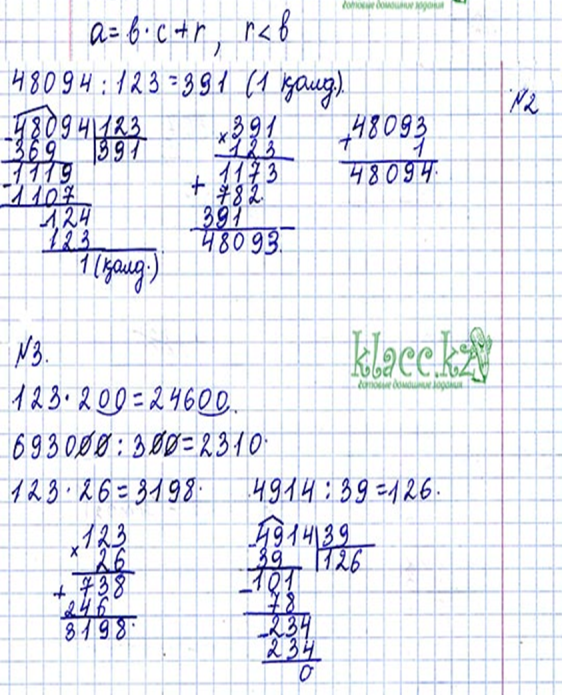 готовые домашние задания
a = b · c + r, r < b
48094 : 123 = 391 (1 қалд.).
№2
48094 | 123
- 369 | 391
1119
- 1107
124
- 123
1 (қалд.)
391
× 123
1173
+ 782
391
48093.
48093
+ 1
48094.
№3.
klacc.kz
готовые домашние задания
123 · 200 = 24600.
693000 : 300 = 2310.
123 · 26 = 3198.
4914 : 39 = 126.
123
× 26
+ 738
246
3198.
- 4914 | 39
39 | 126
- 101
78
- 234
234
0